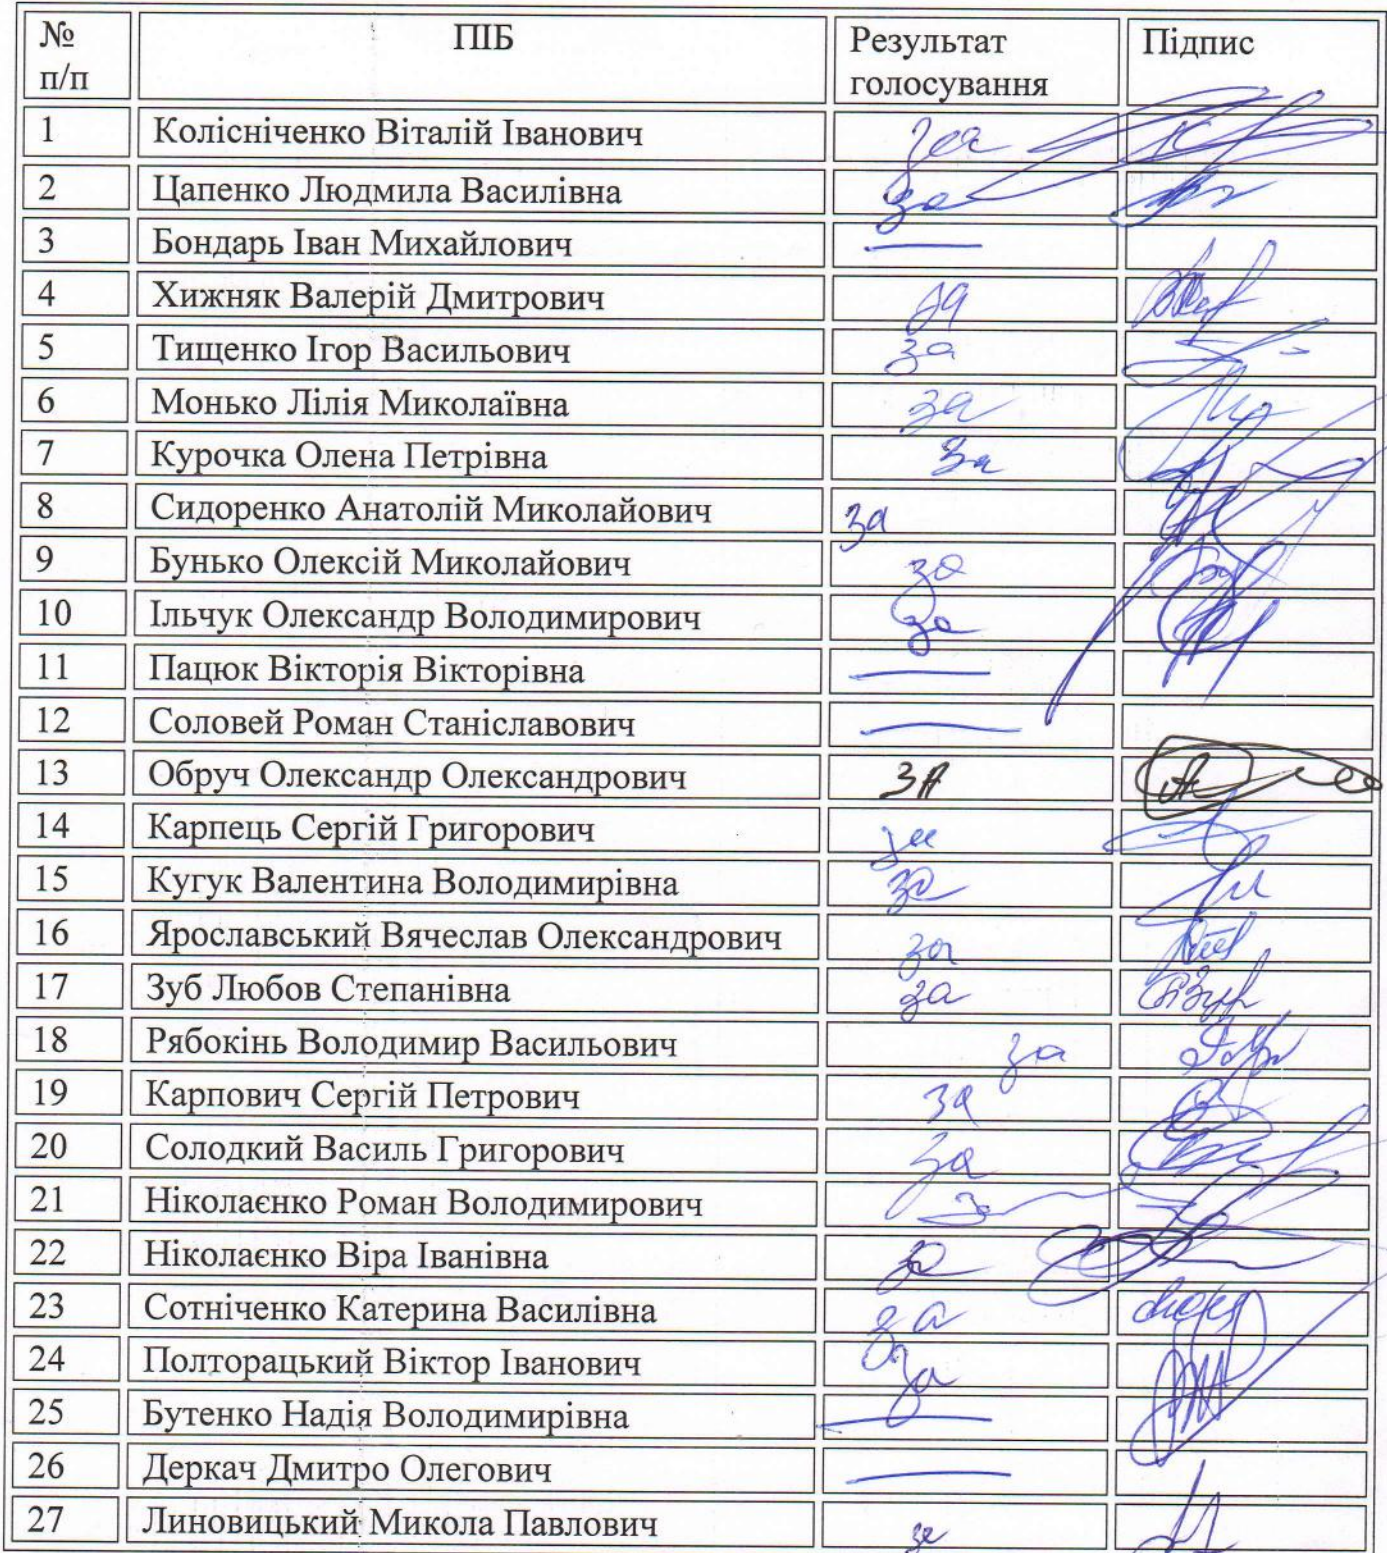 № п/п ПІБ Результат голосування Підпис
1 Колісніченко Віталій Іванович за
2 Цапенко Людмила Василівна за
3 Бондарь Іван Михайлович —
4 Хижняк Валерій Дмитрович за
5 Тищенко Ігор Васильович за
6 Монько Лілія Миколаївна за
7 Курочка Олена Петрівна За
8 Сидоренко Анатолій Миколайович за
9 Бунько Олексій Миколайович за
10 Ільчук Олександр Володимирович за
11 Пацюк Вікторія Вікторівна —
12 Соловей Роман Станіславович —
13 Обруч Олександр Олександрович ЗА
14 Карпець Сергій Григорович за
15 Кугук Валентина Володимирівна за
16 Ярославський Вячеслав Олександрович за
17 Зуб Любов Степанівна за
18 Рябокінь Володимир Васильович за
19 Карпович Сергій Петрович за
20 Солодкий Василь Григорович за
21 Ніколаєнко Роман Володимирович За
22 Ніколаєнко Віра Іванівна за
23 Сотніченко Катерина Василівна за
24 Полторацький Віктор Іванович За
25 Бутенко Надія Володимирівна —
26 Деркач Дмитро Олегович —
27 Линовицький Микола Павлович за